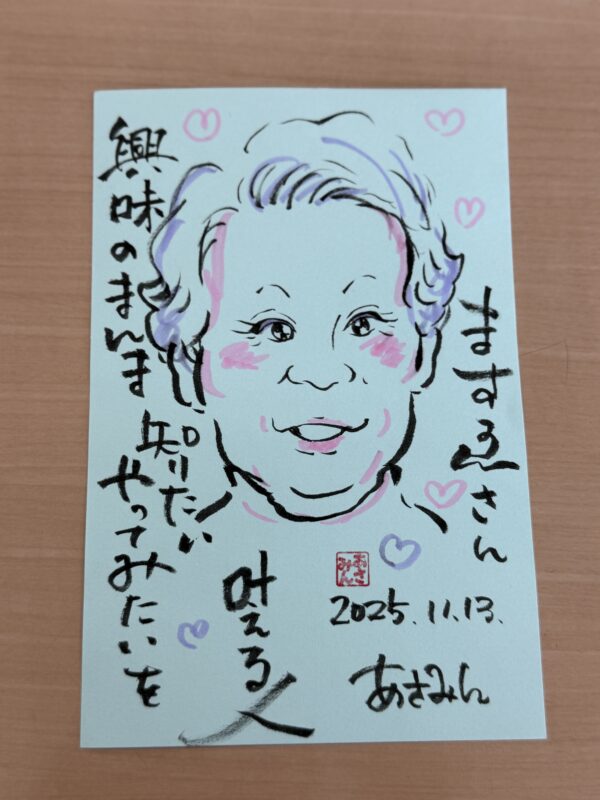 ますゑさん
興味のまんま
知りたい
やってみたいを
叶える人
あさみん
2025.11.13.
あさみん